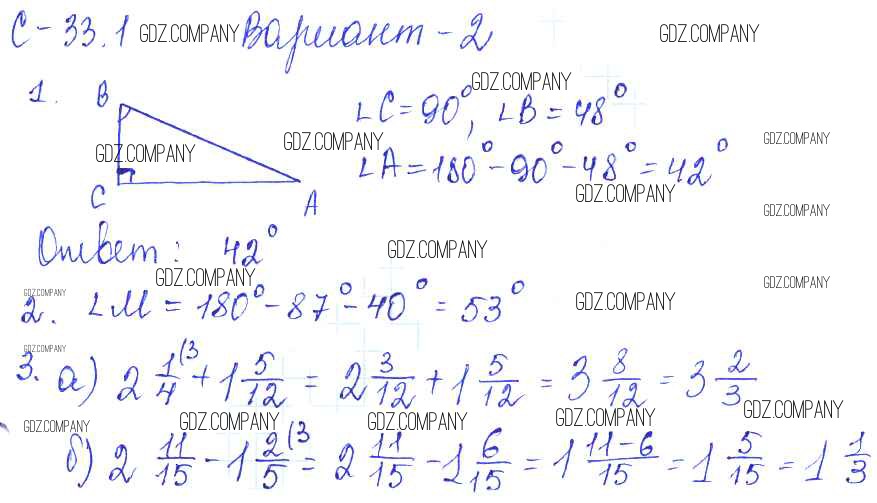 С-33.1 GDZ.COMPANY Вариант-2 GDZ.COMPANY
GDZ.COMPANY
1. B ∠C=90°, ∠B=48°
GDZ.COMPANY GDZ.COMPANY GDZ.COMPANY
∠A=180°-90°-48°=42°
C A GDZ.COMPANY
GDZ.COMPANY
Ответ: 42° GDZ.COMPANY
GDZ.COMPANY GDZ.COMPANY
GDZ.COMPANY GDZ.COMPANY
2. ∠M = 180°-87°-40° = 53°
GDZ.COMPANY
3. а) 2 1/4 (3 + 1 5/12 = 2 3/12 + 1 5/12 = 3 8/12 = 3 2/3
GDZ.COMPANY GDZ.COMPANY GDZ.COMPANY GDZ.COMPANY GDZ.COMPANY
б) 2 11/15 - 1 2/5 (3 = 2 11/15 - 1 6/15 = 1 11-6/15 = 1 5/15 = 1 1/3